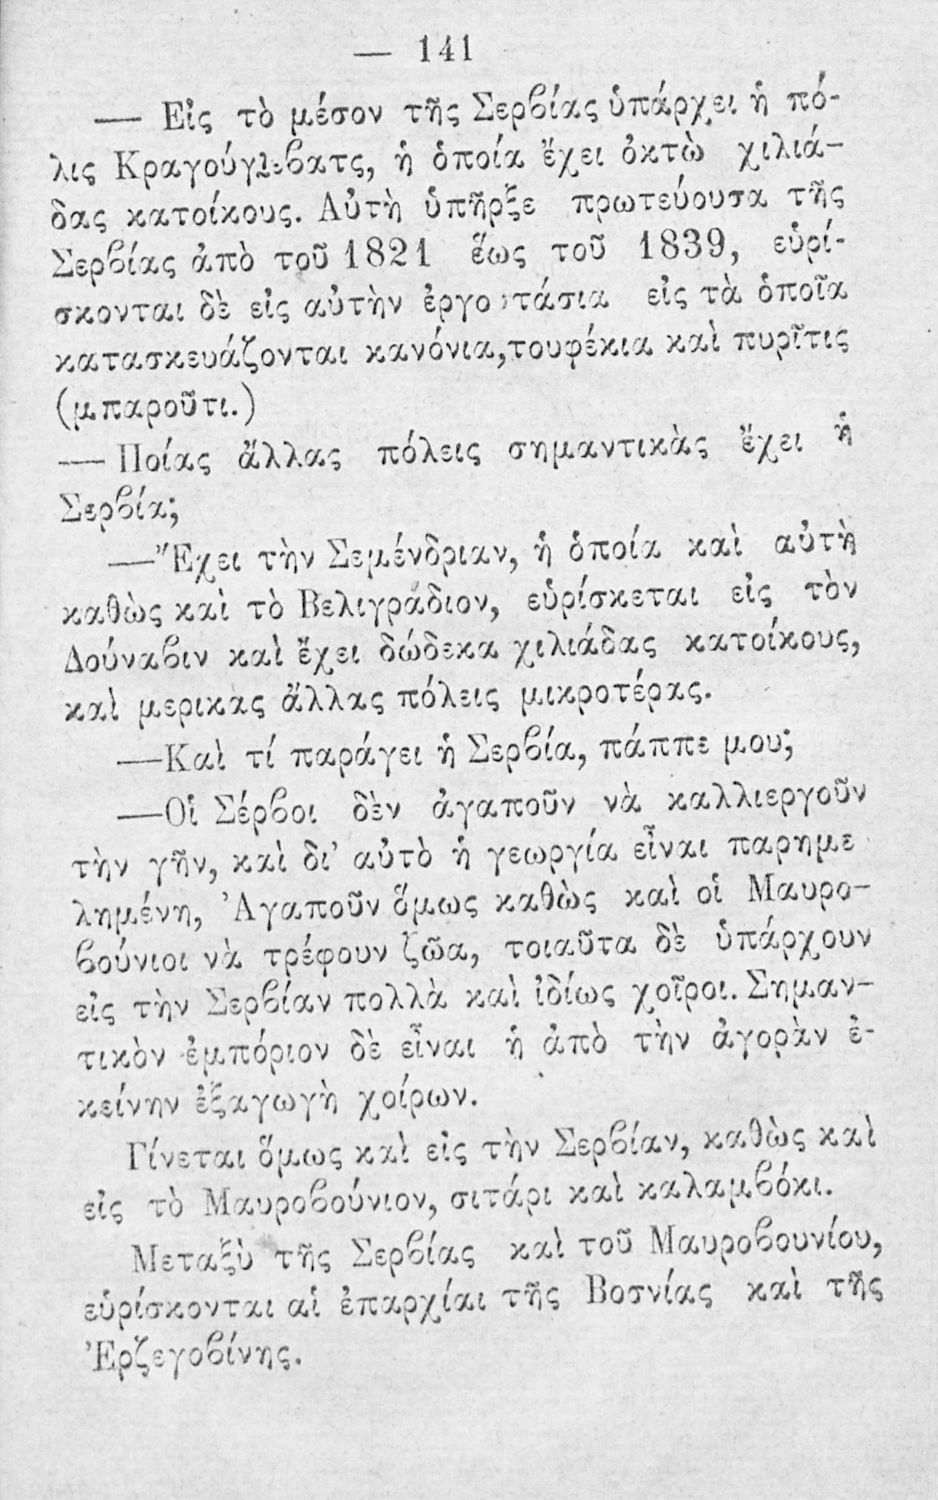 — 141
— Εἰς τὸ μέσον τῆς Σερβίας ὑπάρχει ἡ πό-
λις Κραγούγιεβατς, ἡ ὁποία ἔχει ὀκτὼ χιλιά-
δας κατοίκους. Αὐτὴ ὑπῆρξε πρωτεύουσα τῆς
Σερβίας ἀπὸ τοῦ 1821 ἕως τοῦ 1839, εὑρί-
σκονται δὲ εἰς αὐτὴν ἐργοστάσια εἰς τὰ ὁποῖα
κατασκευάζονται κανόνια,τουφέκια καὶ πυρῖτις
(μπαροῦτι.)
— Ποίας ἄλλας πόλεις σημαντικὰς ἔχει ἡ
Σερβία;
—Ἔχει τὴν Σεμένδριαν, ἡ ὁποία καὶ αὐτὴ
καθὼς καὶ τὸ Βελιγράδιον, εὑρίσκεται εἰς τὸν
Δούναβιν καὶ ἔχει δώδεκα χιλιάδας κατοίκους,
καὶ μερικὰς ἄλλας πόλεις μικροτέρας.
—Καὶ τί παράγει ἡ Σερβία, πάππε μου;
—Οἱ Σέρβοι δὲν ἀγαποῦν νὰ καλλιεργοῦν
τὴν γῆν, καὶ δι' αὐτὸ ἡ γεωργία εἶναι παρημε
λημένη, Ἀγαποῦν ὅμως καθὼς καὶ οἱ Μαυρο-
βούνιοι νὰ τρέφουν ζῶα, τοιαῦτα δὲ ὑπάρχουν
εἰς τὴν Σερβίαν πολλὰ καὶ ἰδίως χοῖροι. Σημαν-
τικὸν ἐμπόριον δὲ εἶναι ἡ ἀπὸ τὴν ἀγορὰν ἐ-
κείνην ἐξαγωγὴ χοίρων.
Γίνεται ὅμως καὶ εἰς τὴν Σερβίαν, καθὼς καὶ
εἰς τὸ Μαυροβούνιον, σιτάρι καὶ καλαμβόκι.
Μεταξὺ τῆς Σερβίας καὶ τοῦ Μαυροβουνίου,
εὑρίσκονται αἱ ἐπαρχίαι τῆς Βοσνίας καὶ τῆς
Ἐρζεγοβίνης.